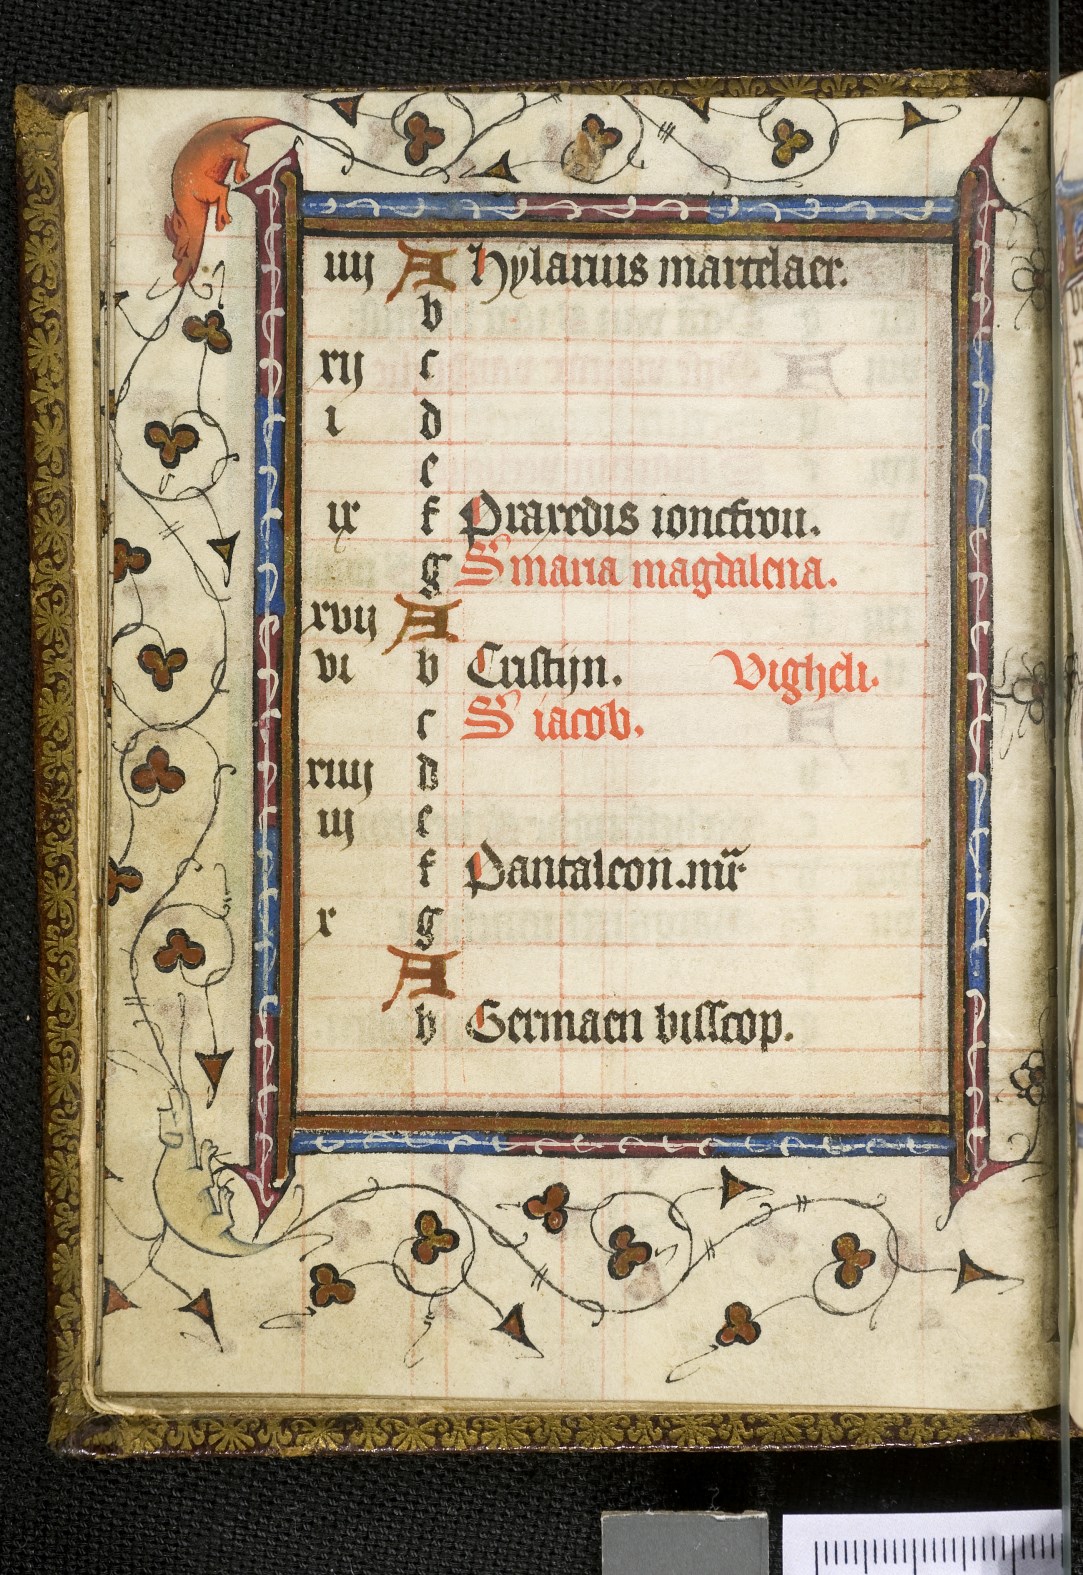 iiij A Hylarius martelaer.
b
xij c
i d
e
ix f Praxedis ioncfrou.
g S' maria magdalena.
xvij A
vi b Cristijn. Vigheli.
c S' iacob.
xiiij d
iij e
f Pantaleon.mr̃
x g
A
b Germaen bisscop.